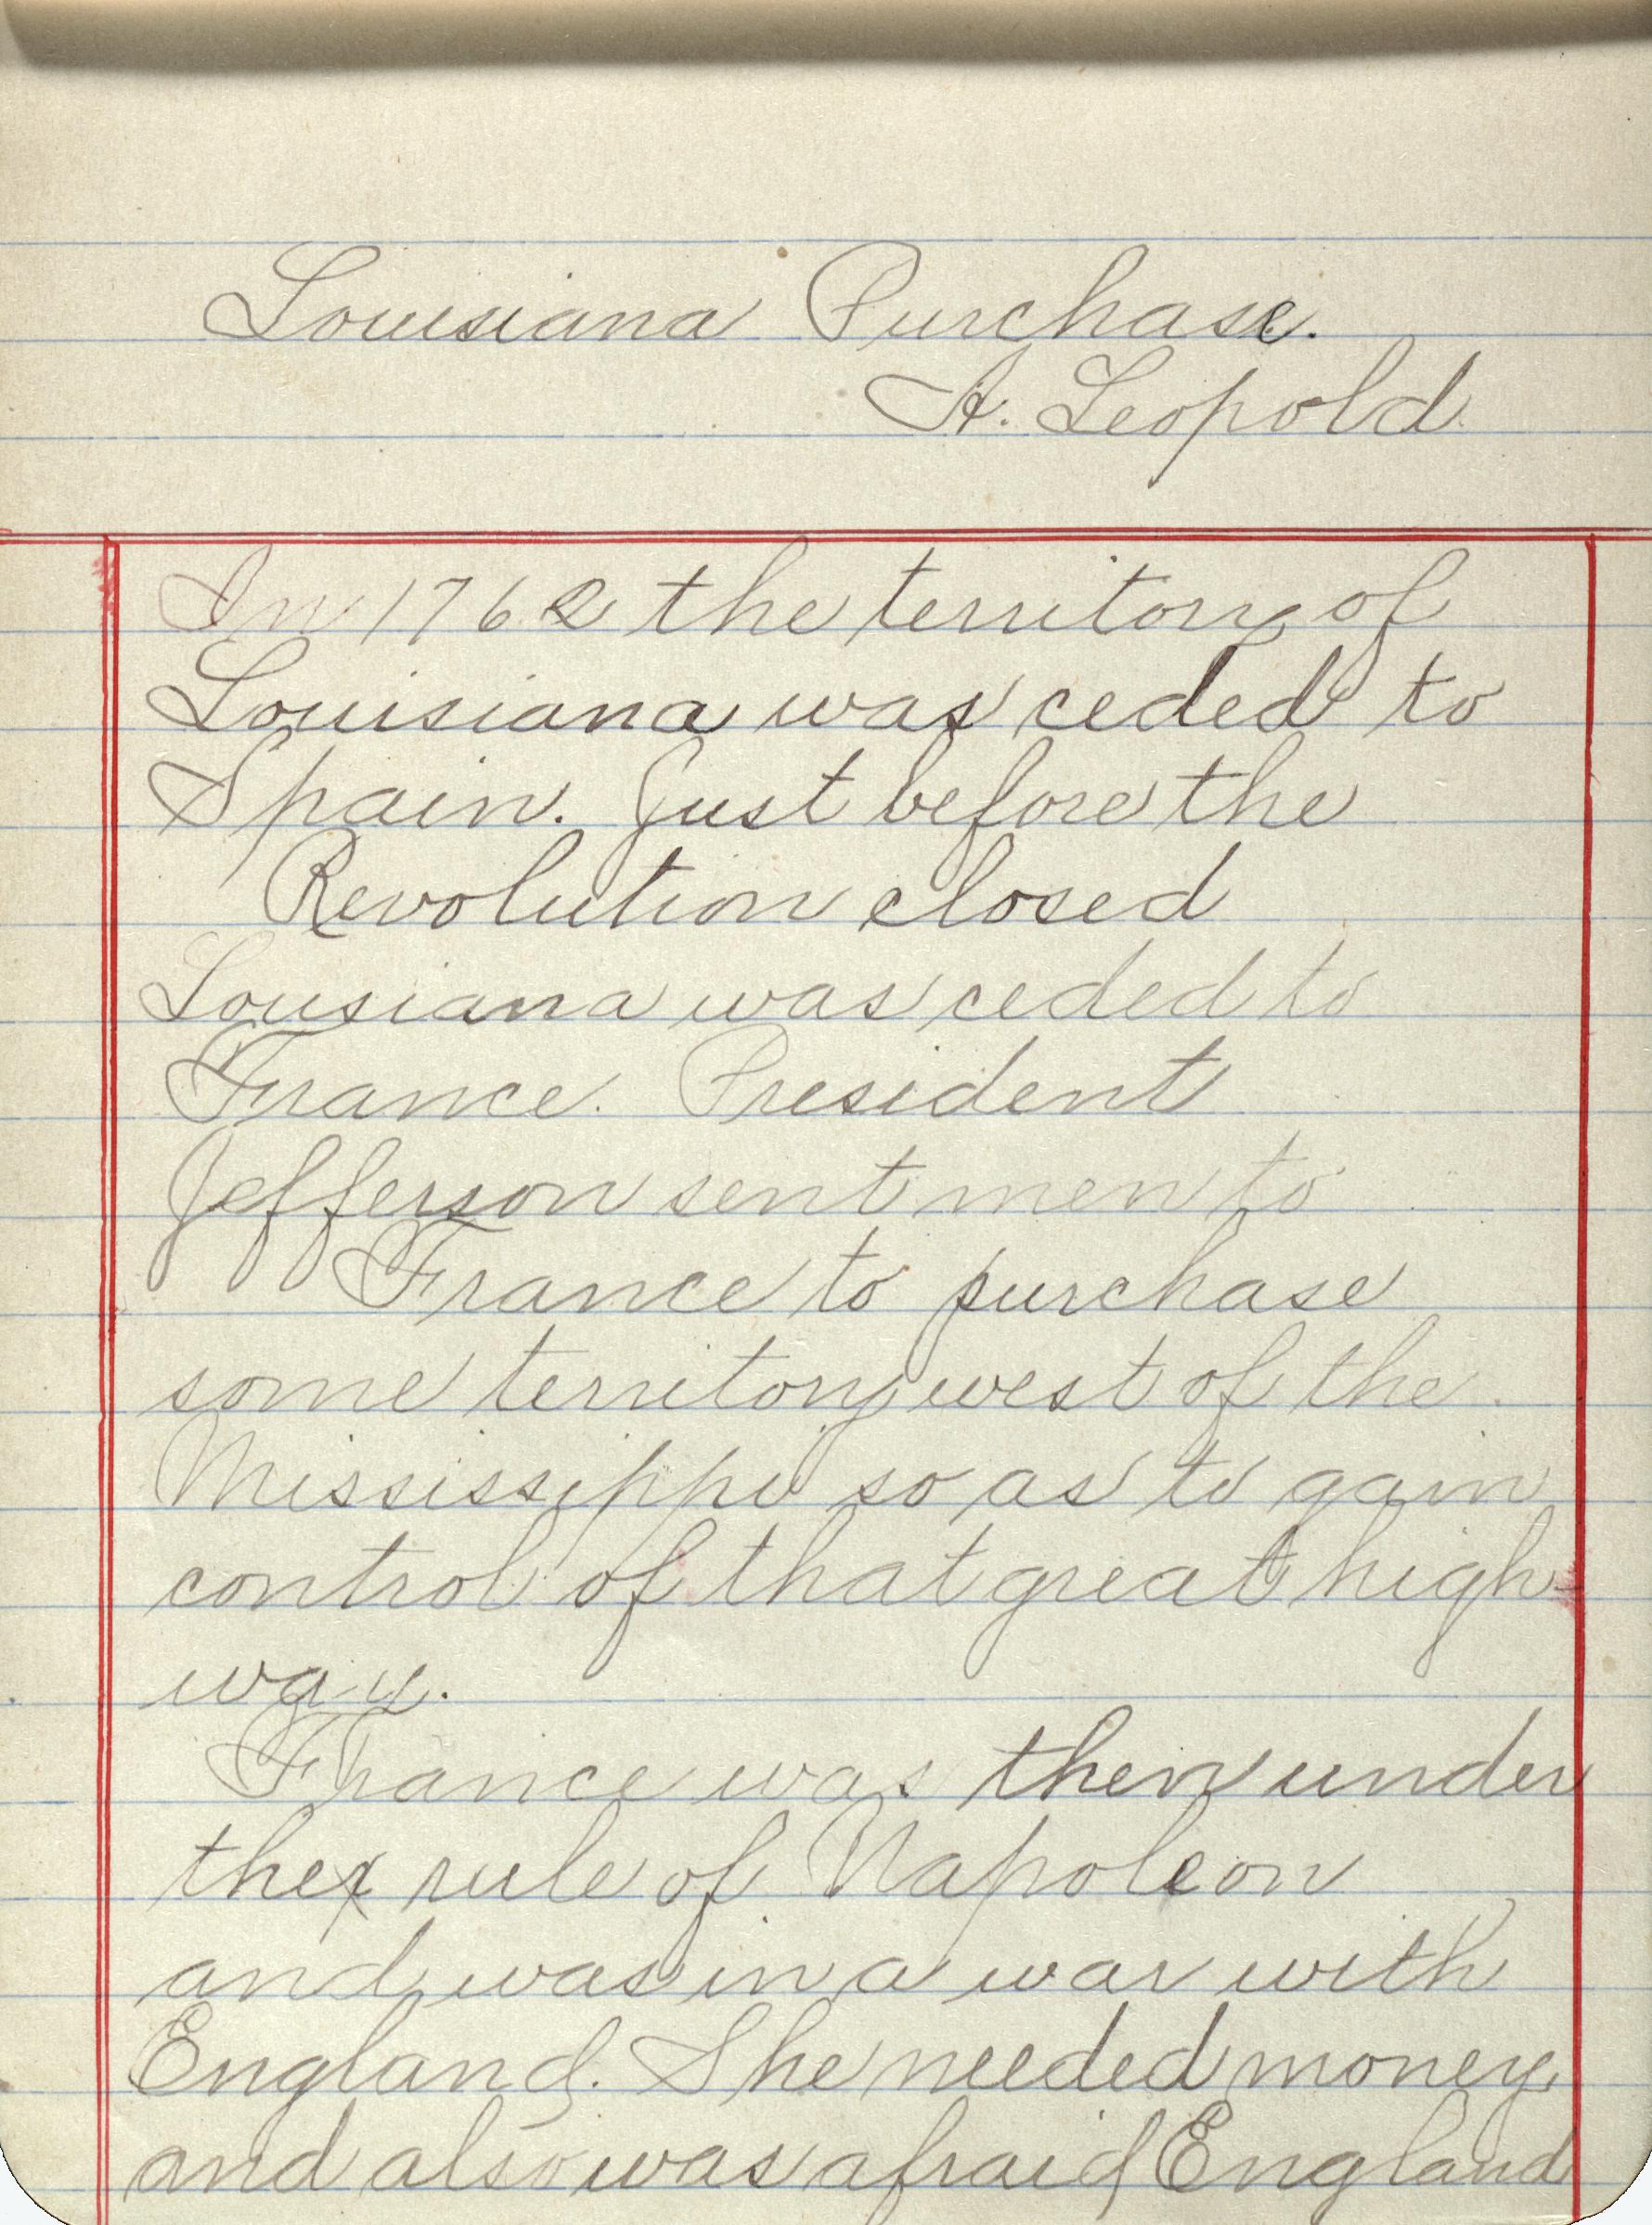 Louisiana Purchase.
A. Leopold.
In 1762 the territory of
Louisiana was ceded to
Spain. Just before the
Revolution closed
Lousiana was ceded to
France. President
Jefferson sent men to
France to purchase
some territory west of the
Mississippi so as to gain
control of that great high-
way.
France was then under
the rule of Napoleon
and was in a war with
England. She needed money
and also was afraid England